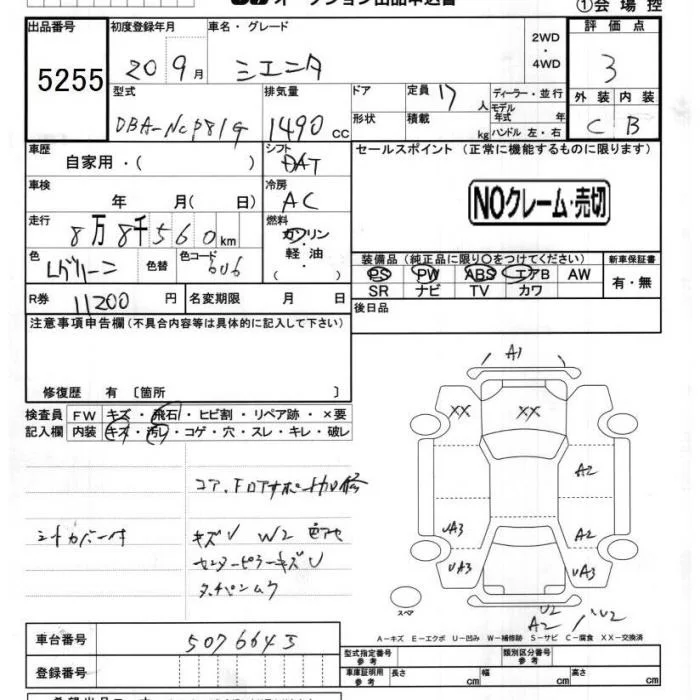 オークション出品申込書
①会場控
出品番号
5255
初度登録年月
20 9月
車名・グレード
シエンタ
2WD
・
4WD
評価点
3
外装 内装
C B
型式
DBA-NCP81G
排気量
1490 cc
ドア
形状
定員 17 人
積載 kg
ディーラー・並行
モデル
年式 年
ハンドル 左・右
車歴
自家用・( )
シフト
DAT
セールスポイント (正常に機能するものに限ります)
NOクレーム・売切
車検
年 月( 日)
冷房
AC
走行
8万8千560km
燃料
ガソリン
・
軽油・
( )
色
Lグリーン
色替
色コード
6U6
装備品 (純正品に限り○をつけてください)
PS PW ABS エアB AW
SR ナビ TV カワ
新車保証書
有・無
R券 11200 円
名変期限 月 日
後日品
注意事項申告欄(不具合内容等は具体的に記入して下さい)
修復歴 有 〔箇所 〕
検査員
記入欄
FW キズ・飛石・ヒビ割・リペア跡・×要
内装 キズ・汚レ・コゲ・穴・スレ・キレ・破レ
コア、Fロアサポート凹修
シートカバー付
キズU W2
センターピラーキズU
A1
XX
XX
A2
UA3
A2
UA3
UA3
スペア
U2
A2
U2
A−キズ E−エクボ U−凹み W−補修跡 S−サビ C−腐食 XX−交換済
車台番号
5076645
登録番号
型式指定番号
参考
類別区分番号
参考
車証明用
参考
長さ cm
幅 cm
高さ cm